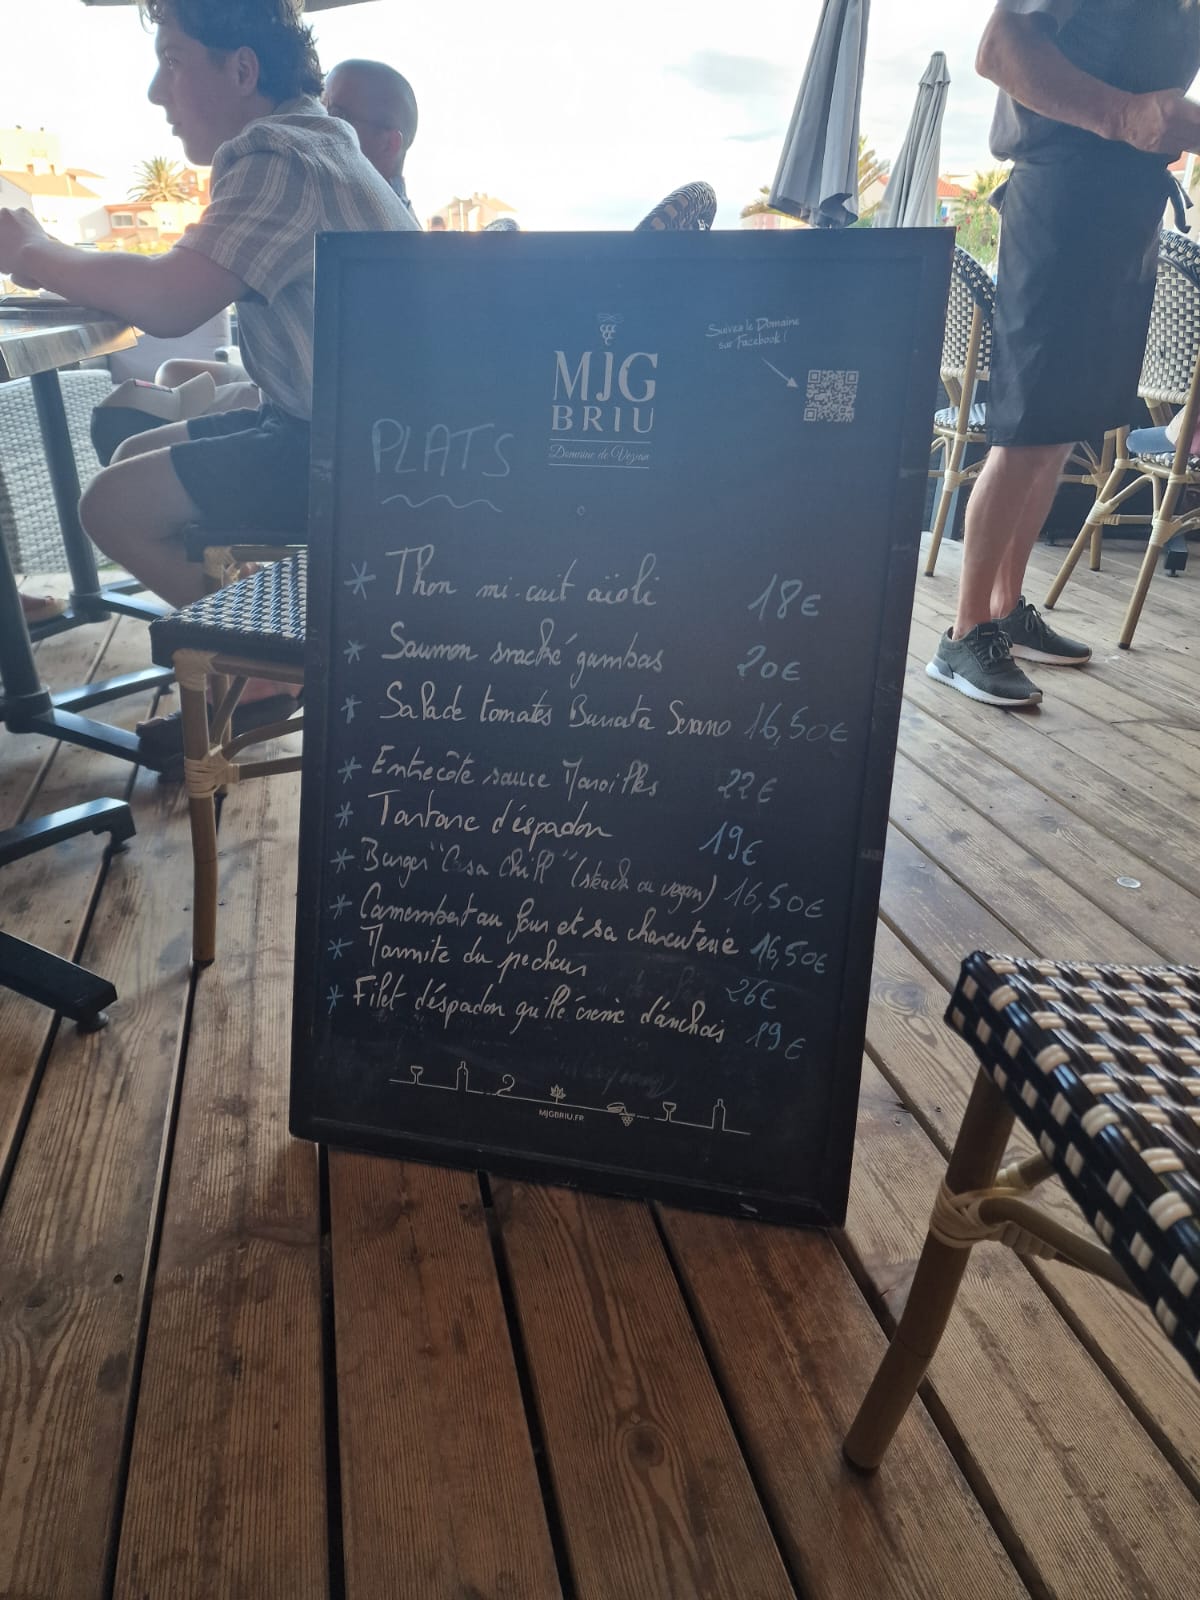 MJG
BRIU
Domaine de Vezian
Suivez le Domaine
sur Facebook !
PLATS
* Thon mi-cuit aïoli 18€
* Saumon snacké gambas 20€
* Salade tomates Burrata Serano 16,50€
* Entrecôte sauce Maroilles 22€
* Tartare d'éspadon 19€
* Burger "Casa Chill" (steack ou vegan) 16,50€
* Camembert au four et sa charcuterie 16,50€
* Marmite du pecheur 26€
* Filet d'éspadon grillé crème d'anchois 19€
MJGBRIU.FR